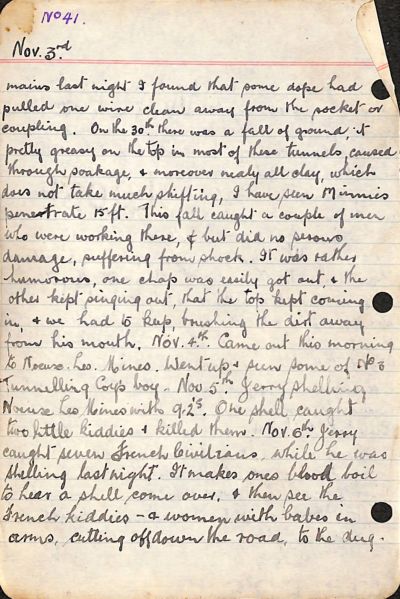 No 41.
Nov. 3rd
mains last night I found that some dope had
pulled one wire clean away from the socket or
coupling. On the 30th there was a fall of ground, it
pretty greasy on the top in most of these tunnels caused
through soakage, & moreover mealy all clay, which
does not take much shifting, I have seen Minnies
penetrate 15ft. This fall caught a couple of men
who were working there, & but did no serous
damage, suffering from shock. It was rather
humorous, one chap was easily got out, & the
other kept singing out, that the top kept coming
in, & we had to keep, brushing the dirt away
from his mouth. Nov. 4th. Came out this morning
to Noeux. Les. Mines. Went up & seen some of No 3
Tunnelling Coys boy - Nov 5th. Jerry shelling
Noeux Les Mines with 9.2's. One shell caught
two little kiddies & killed them. Nov. 6th Jerry
caught seven French Civilians, while he was
shelling last night. It makes ones blood boil
to hear a shell come over, & then see the
French kiddies - & women with babes in
arms, cutting off down the road, to the dug-